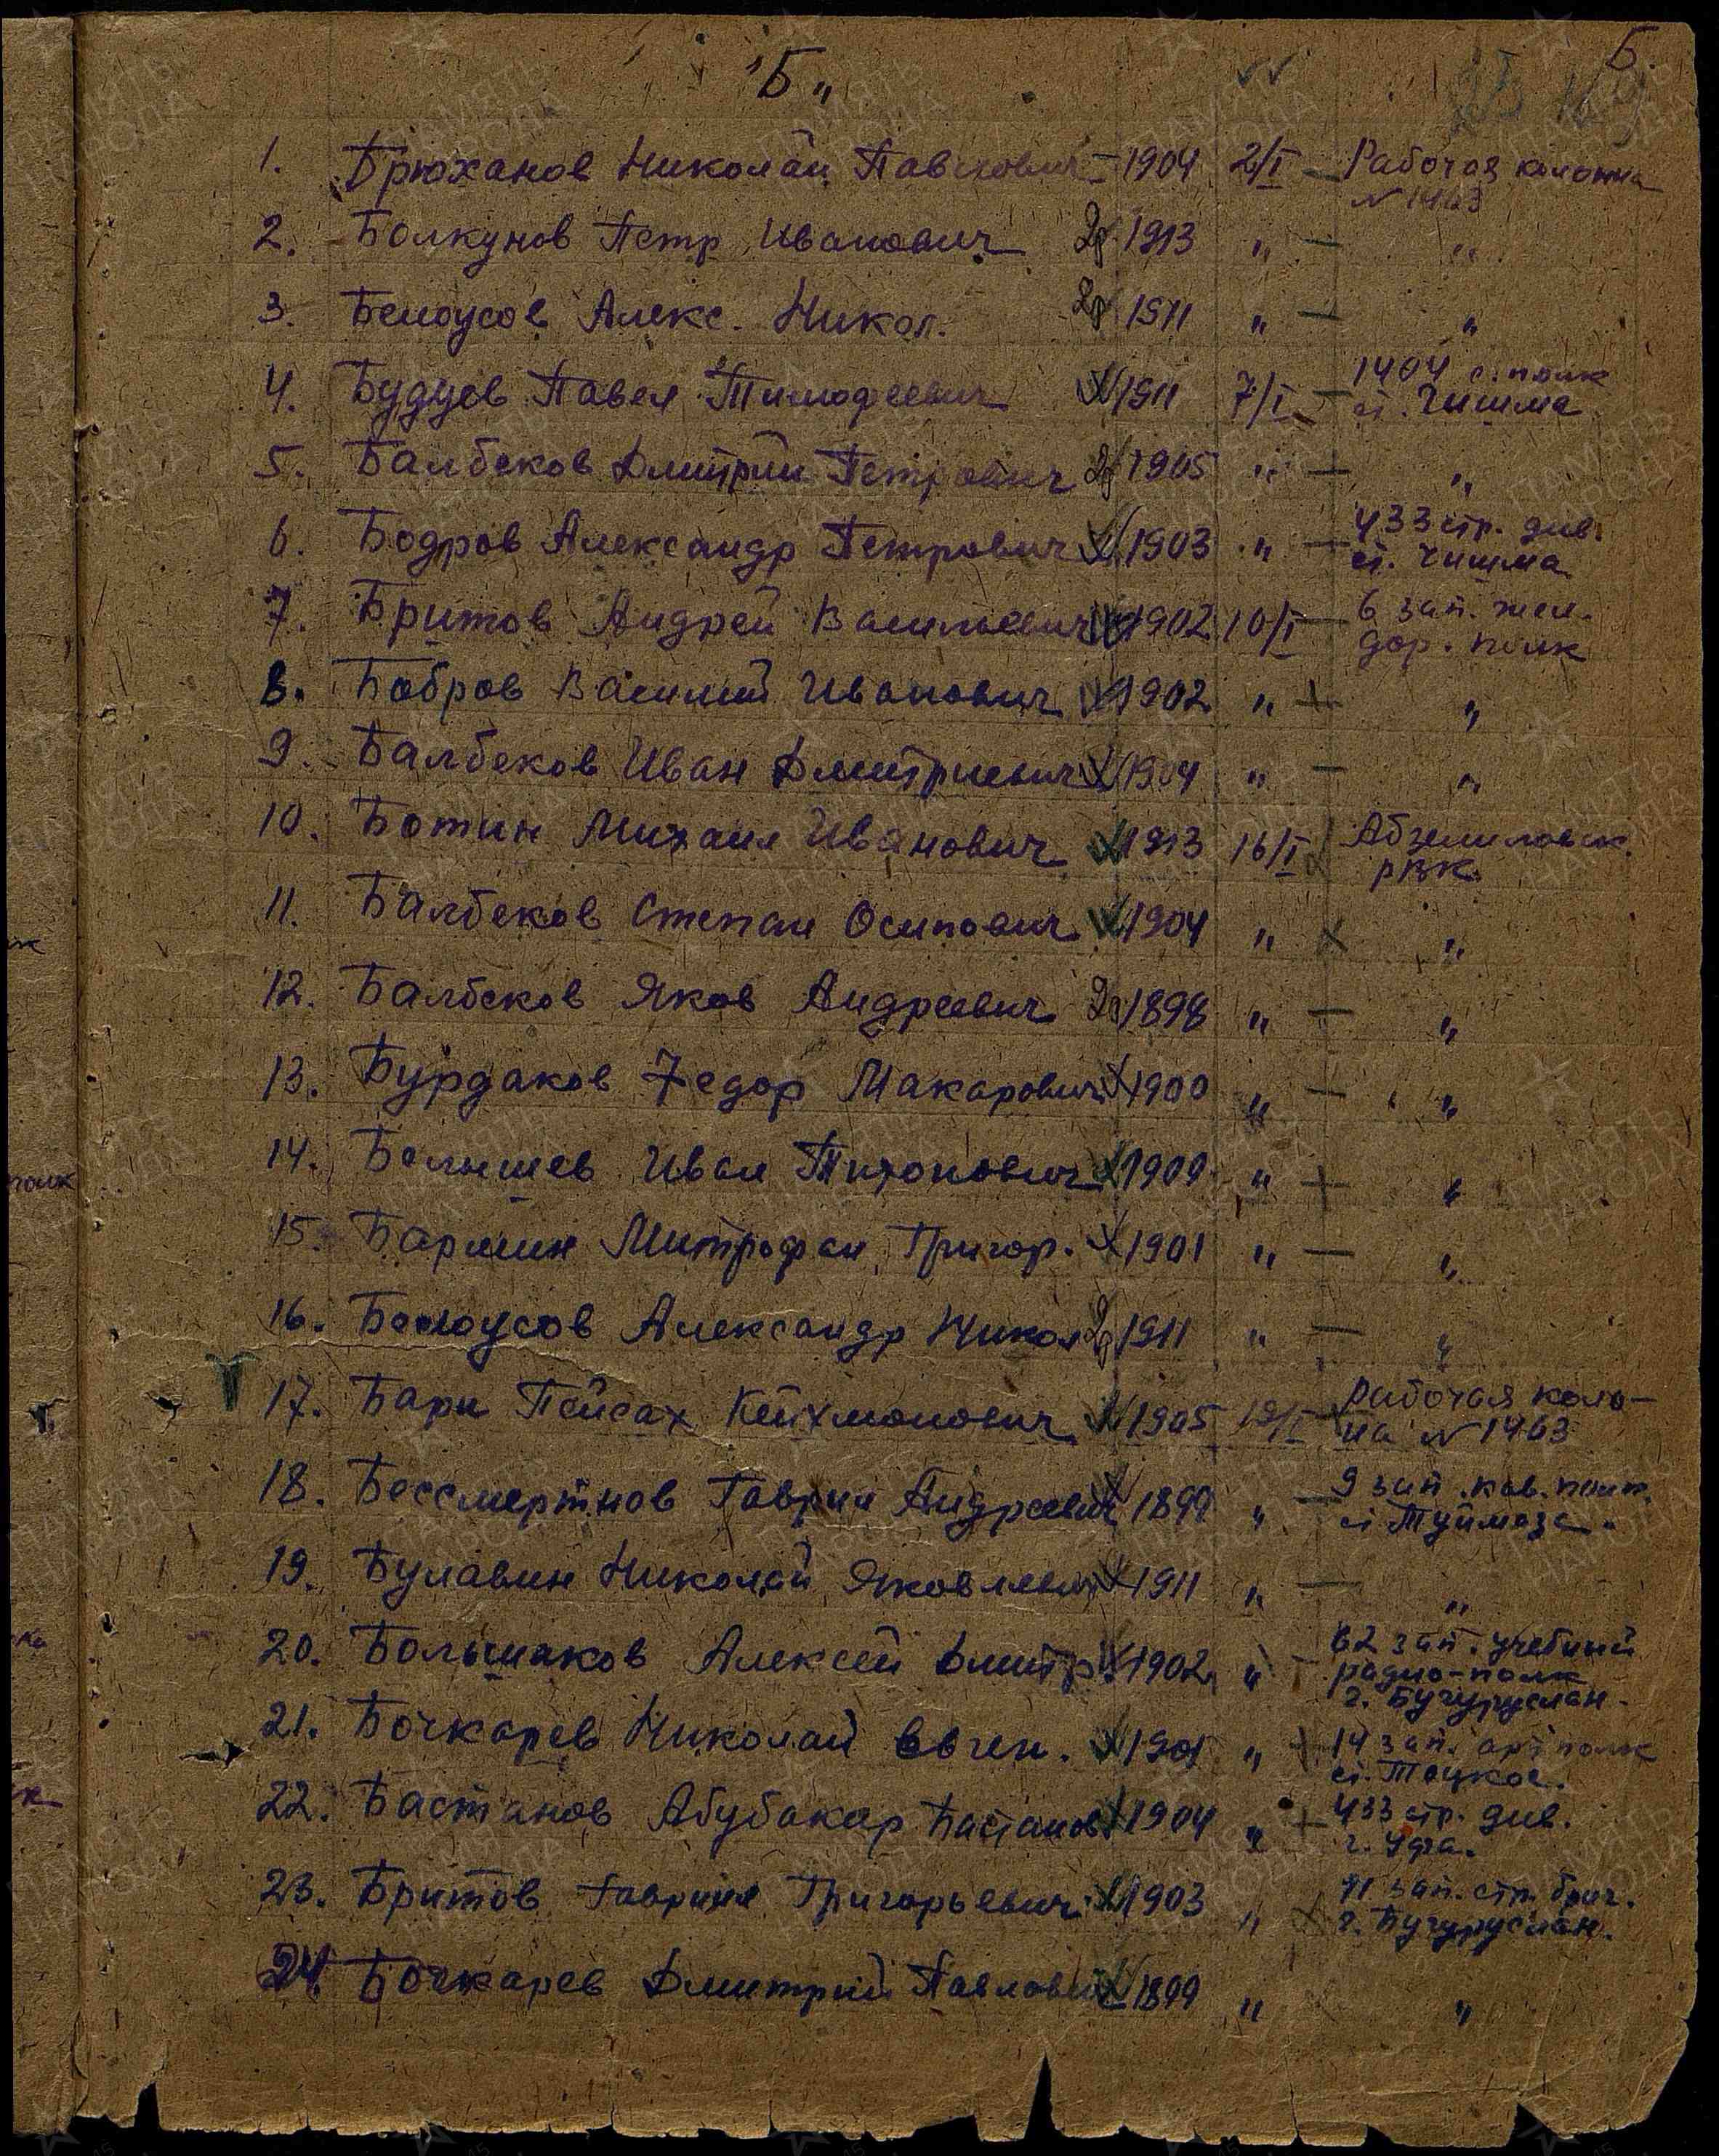 Б.
"Б"
1. Брюханов Николай Павлович - 1904 2/I - Рабочая колонна
№ 1463
2. Болкунов Петр Иванович 1913 " - "
3. Белоусов Алекс. Никол. 1911 " - "
4. Будцев Павел Тимофеевич 1911 7/I - 1404 с. полк
ст. Чишма
5. Балбеков Дмитрий Петрович 1905 " + "
6. Бодров Александр Петрович 1903 " - 433 стр. див.
ст. Чишма
7. Бритов Андрей Васильевич 1902 10/I - 6 зап. жел.
дор. полк
8. Бобров Василий Иванович 1902 " + "
9. Балбеков Иван Дмитриевич 1904 " - "
10. Ботин Михаил Иванович 1913 16/I Абзелиловск.
РВК
11. Балбеков Степан Осипович 1904 " х "
12. Балбеков Яков Андреевич 1898 " - "
13. Бурдаков Федор Макарович 1900 " - "
14. Белышев Иван Тихонович 1909 " + "
15. Бармин Митрофан Григор. 1901 " - "
16. Белоусов Александр Никол 1911 " - "
17. Барн Пейсах Кейхманович 1905 19/I Рабочая коло-
на № 1463
18. Бессмертнов Гаврил Андреевич 1899 " - 9 зап. кав. полк.
ст Туймаза.
19. Булавин Николай Яковлевич 1911 " - "
20. Большаков Алексей Дмитр. 1902 " - 62 зап. учебный
радио-полк
г. Бугуруслан.
21. Бочкарев Николай Евген. 1901 " + 14 зап. арт полк
ст. Тоцкое.
22. Бастанов Абубакар Бастанов 1904 " + 433 стр. див.
г. Уфа.
23. Бритов Гавриил Григорьевич 1903 " х 11 зап. стр. бриг.
г. Бугуруслан.
24 Бочкарев Дмитрий Павлович 1899 " "
ПАМЯТЬ НАРОДА